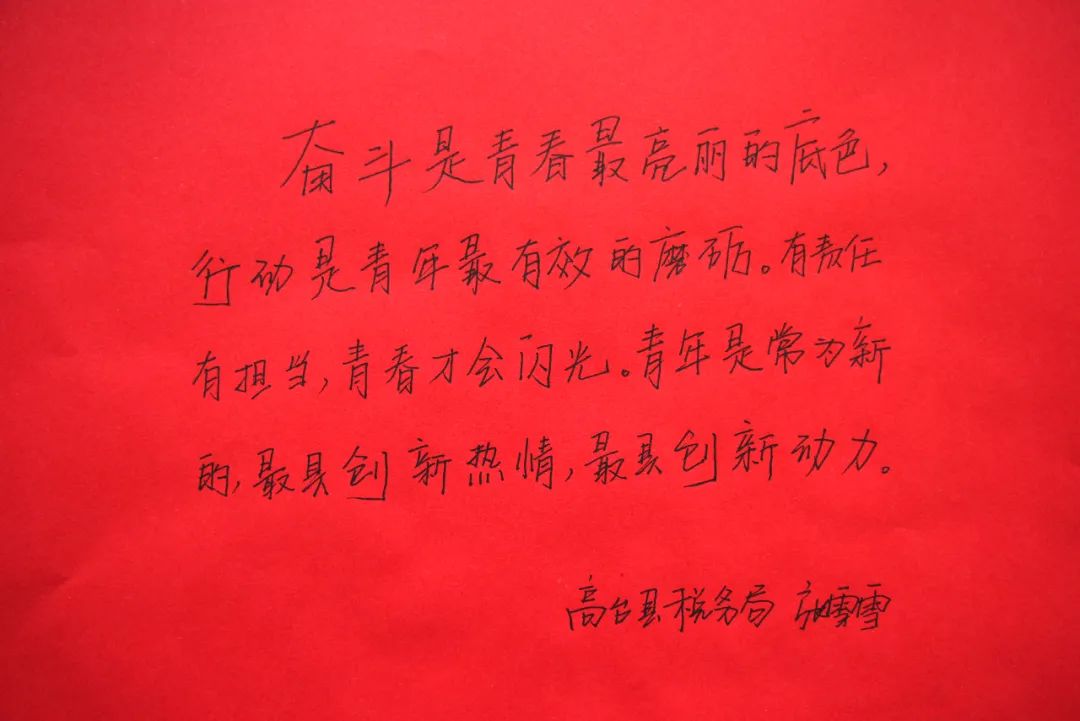 奋斗是青春最亮丽的底色，
行动是青年最有效的磨砺。有责任
有担当，青春才会闪光。青年是常为新
的，最具创新热情，最具创新动力。
高台县税务局 雪雪